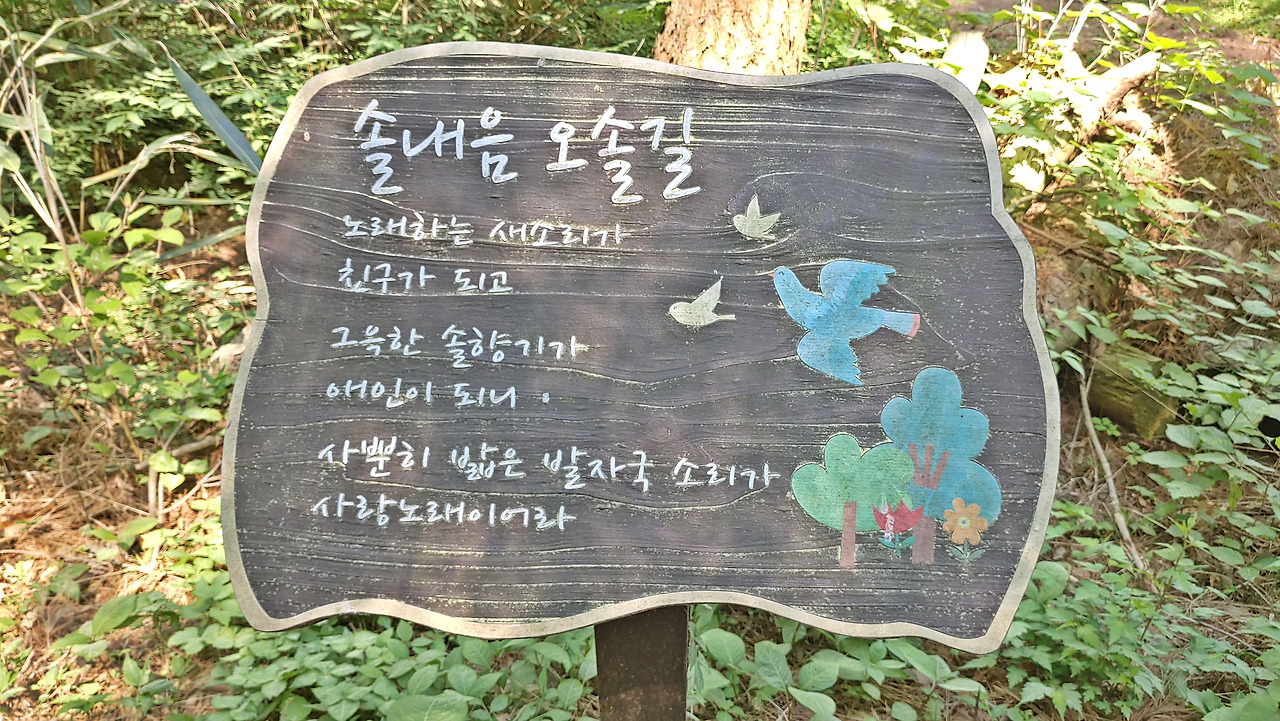 솔내음 오솔길
노래하는 새소리가
친구가 되고
그윽한 솔향기가
애인이 되니
사뿐히 밟은 발자국 소리가
사랑노래이어라